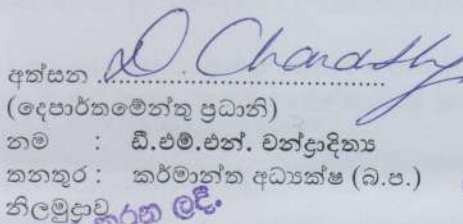 අත්සන ..............................
(දෙපාර්තමේන්තු ප්‍රධානි)
නම : ඩී.එම්.එන්. චන්ද්‍රාදිත්‍ය
තනතුර : කර්මාන්ත අධ්‍යක්ෂ (බ.ප.)
නිලමුද්‍රාව කරන ලදී.